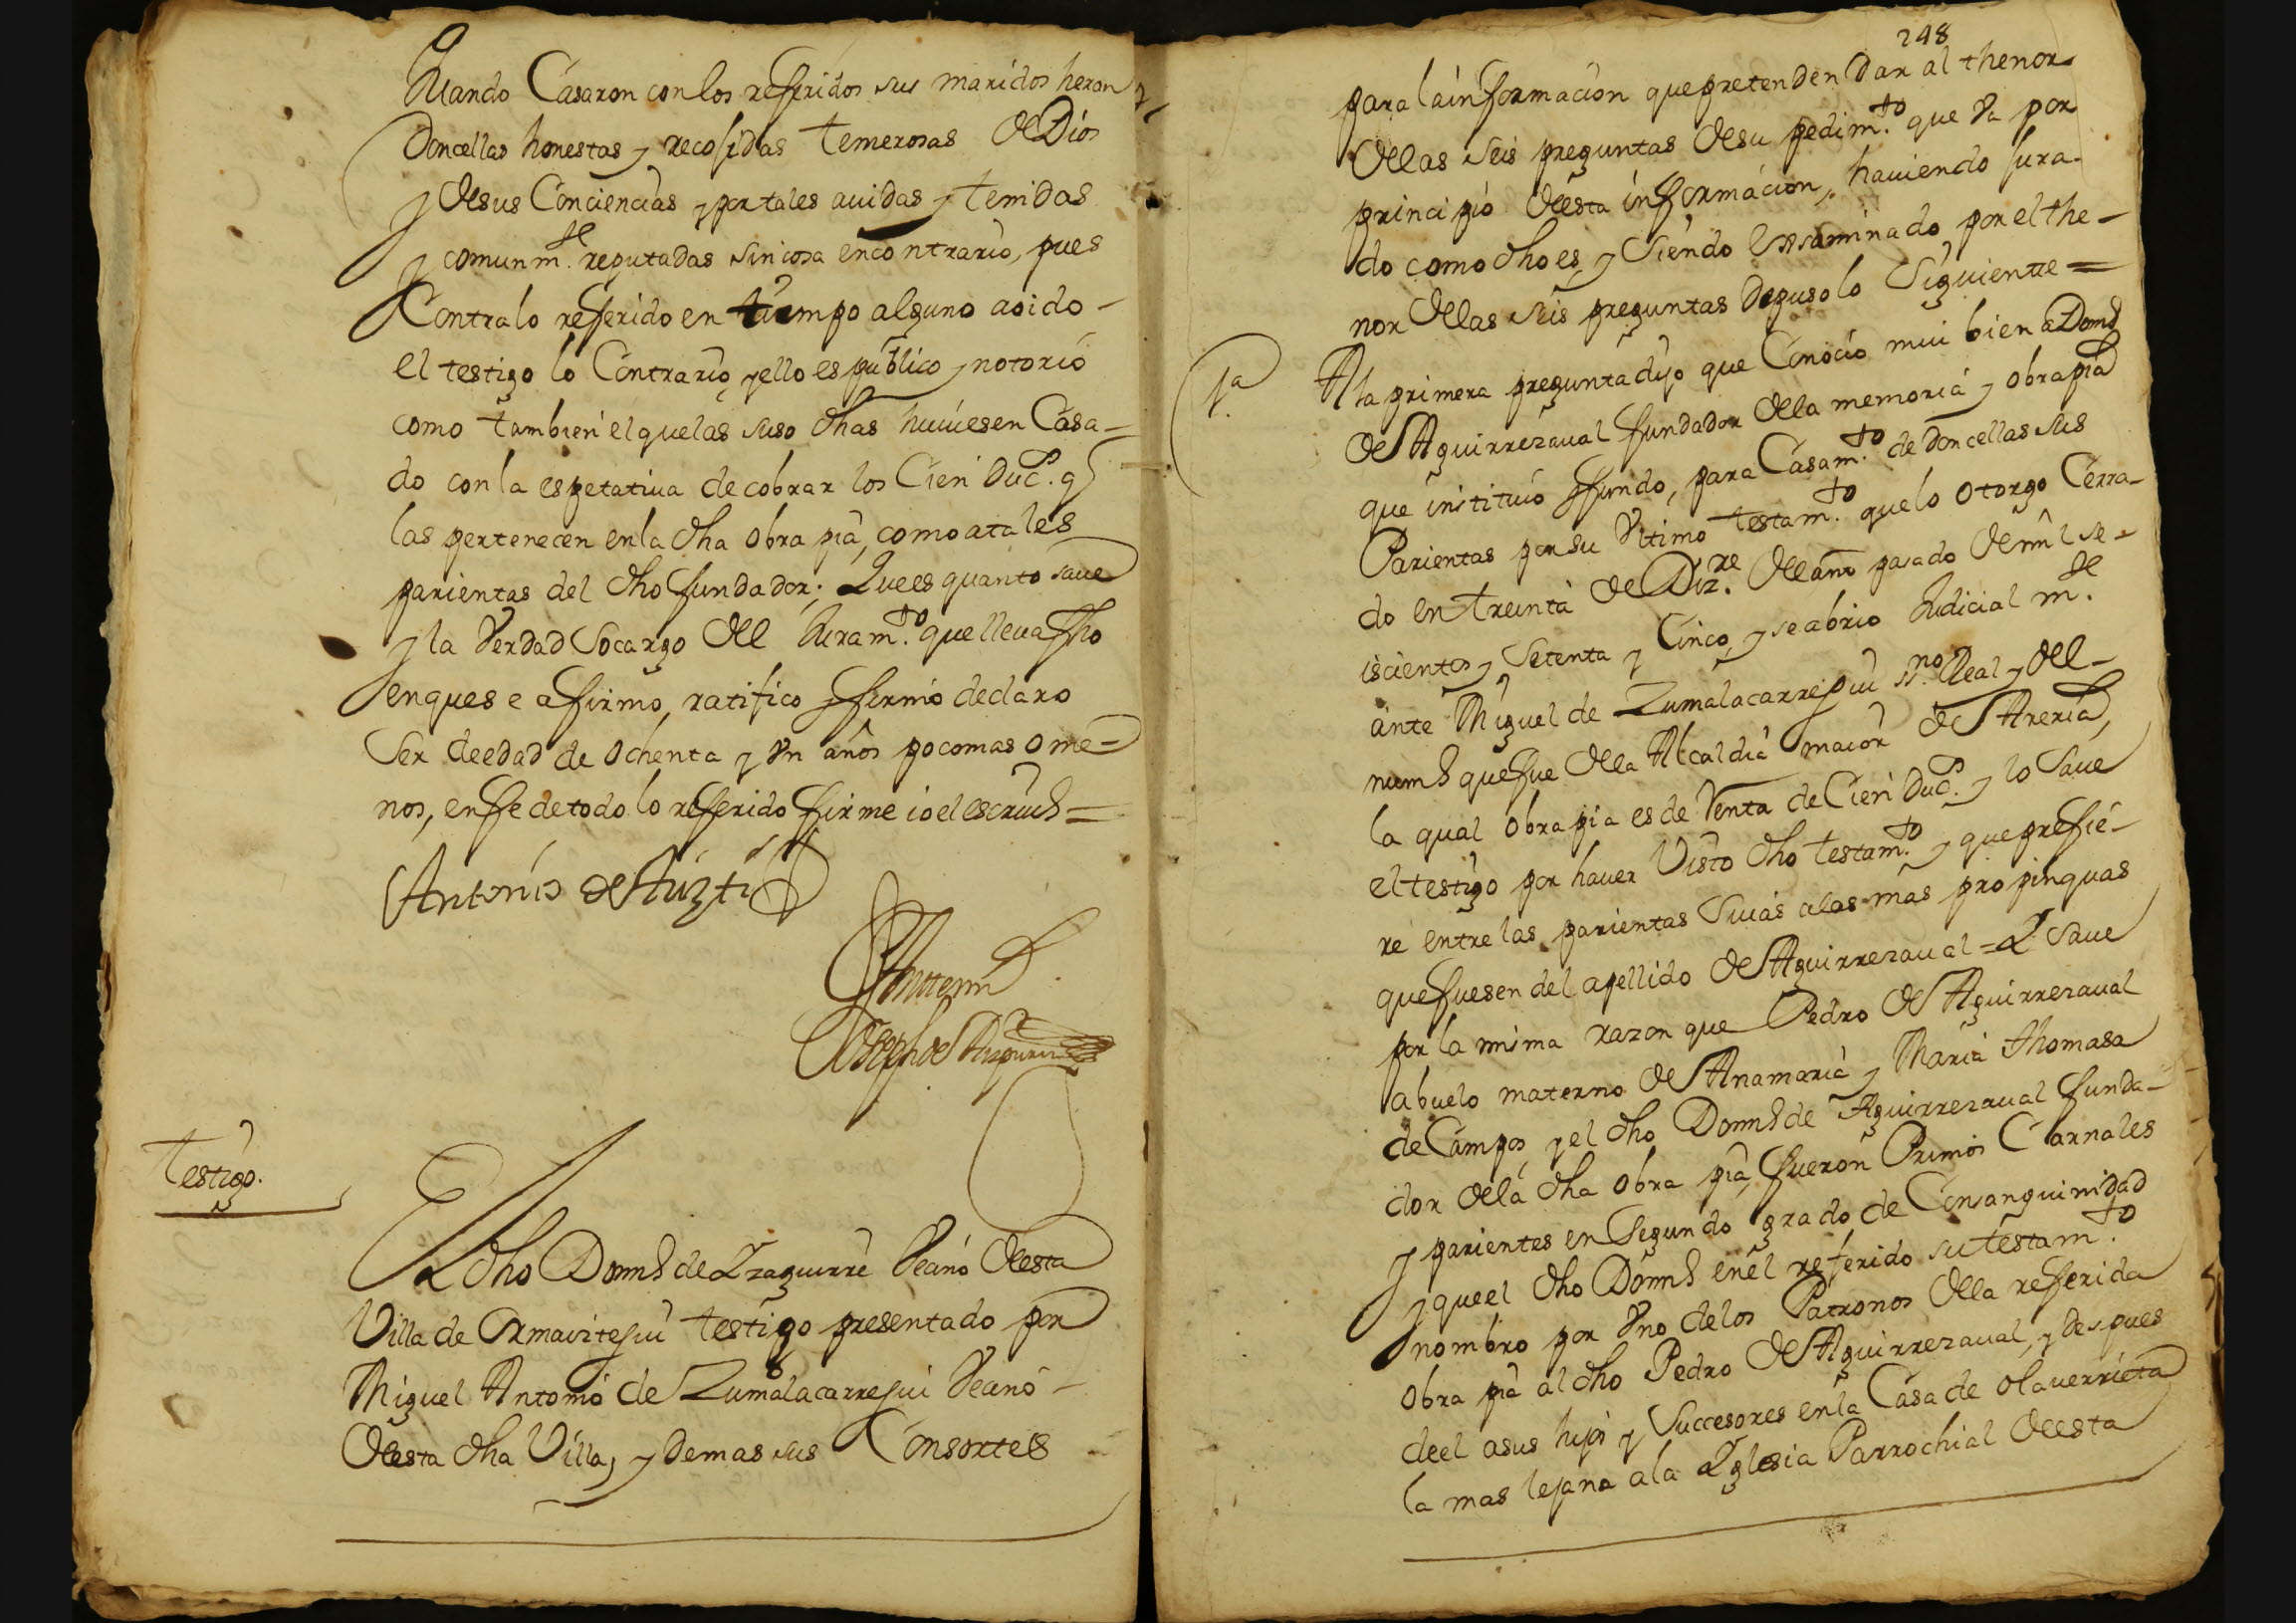 quando Casaron con los referidos sus maridos heran
Doncellas honestas y recojidas temerosas de Dios
y de sus Conciencias y por tales avidas y tenidas
y comunm.te reputadas sin cosa en contrario, pues
Contra lo referido en tiempo alguno a oido -
el testigo lo Contrario, y ello es publico y notorio
como tambien el que las suso dhas huviesen Casa-
do con la espetativa de cobrar los Cien Duc.s q
las pertenecen en la dha obra pia, como a tales
parientas del dho fundador; Que es quanto save
y la verdad so cargo del Juram.to que lleva fho
en que s e afirmo, ratifico y firmo declaro
Ser de edad de ochenta y un años poco mas o me-
nos, en fe de todo lo referido firme io el escriuo =
Antonio de Auzti
Antemi
Joseph de Aizpuru
Testigo.
El dho Dom.o de Yzaguirre Vecino desta
Villa de Ormaiztegui testigo presentado por
Miguel Antonio de Zumalacarregui Vecino -
desta dha Villa, y demas sus Consortes
248
para la informacion que pretenden dar al thenor
de las seis preguntas de su pedim.to que va por
principio desta informacion, haviendo jura-
do como dho es, y siendo Exsaminado por el the-
nor de las seis preguntas depuso lo siguiente =
1.a
A la primera pregunta dijo que Conocio mui bien a Dom.o
de Aguirrezaval fundador de la memoria y obra pia
que instituio y fundo, para Casam.to de doncellas sus
Parientas por su Vltimo testam.to que lo otorgo Cerra-
do en treinta de Diz.re del año pasado de mil se-
iscientos y setenta y Cinco, y se abrio Judicial m.te
ante Miguel de Zumalacarregui ss.no Real y del -
num.o que fue de la Alcaldia maior de Areria,
la qual obra pia es de Renta de Cien Duc.s y lo save
el testigo por haver Visto dho testam.to y que prefie-
re entre las parientas suias a las mas propinquas
que fuesen del apellido de Aguirrezaval = Y save
por la misma razon que Pedro de Aguirrezaval
abuelo materno de Ana maria y Maria thomasa
de Campos, y el dho Dom.o de Aguirrezaval funda-
dor de la dha obra pia, fueron Primos Carnales
y parientes en Segundo grado de Consanguinidad
y que el dho Dom.o en el referido su testam.to
nombro por Vno de los Patronos de la referida
obra pia al dho Pedro de Aguirrezaval, y despues
de el a sus hijos y Succesores en la Casa de olaverrieta
la mas lejana a la Yglesia Parrochial desta